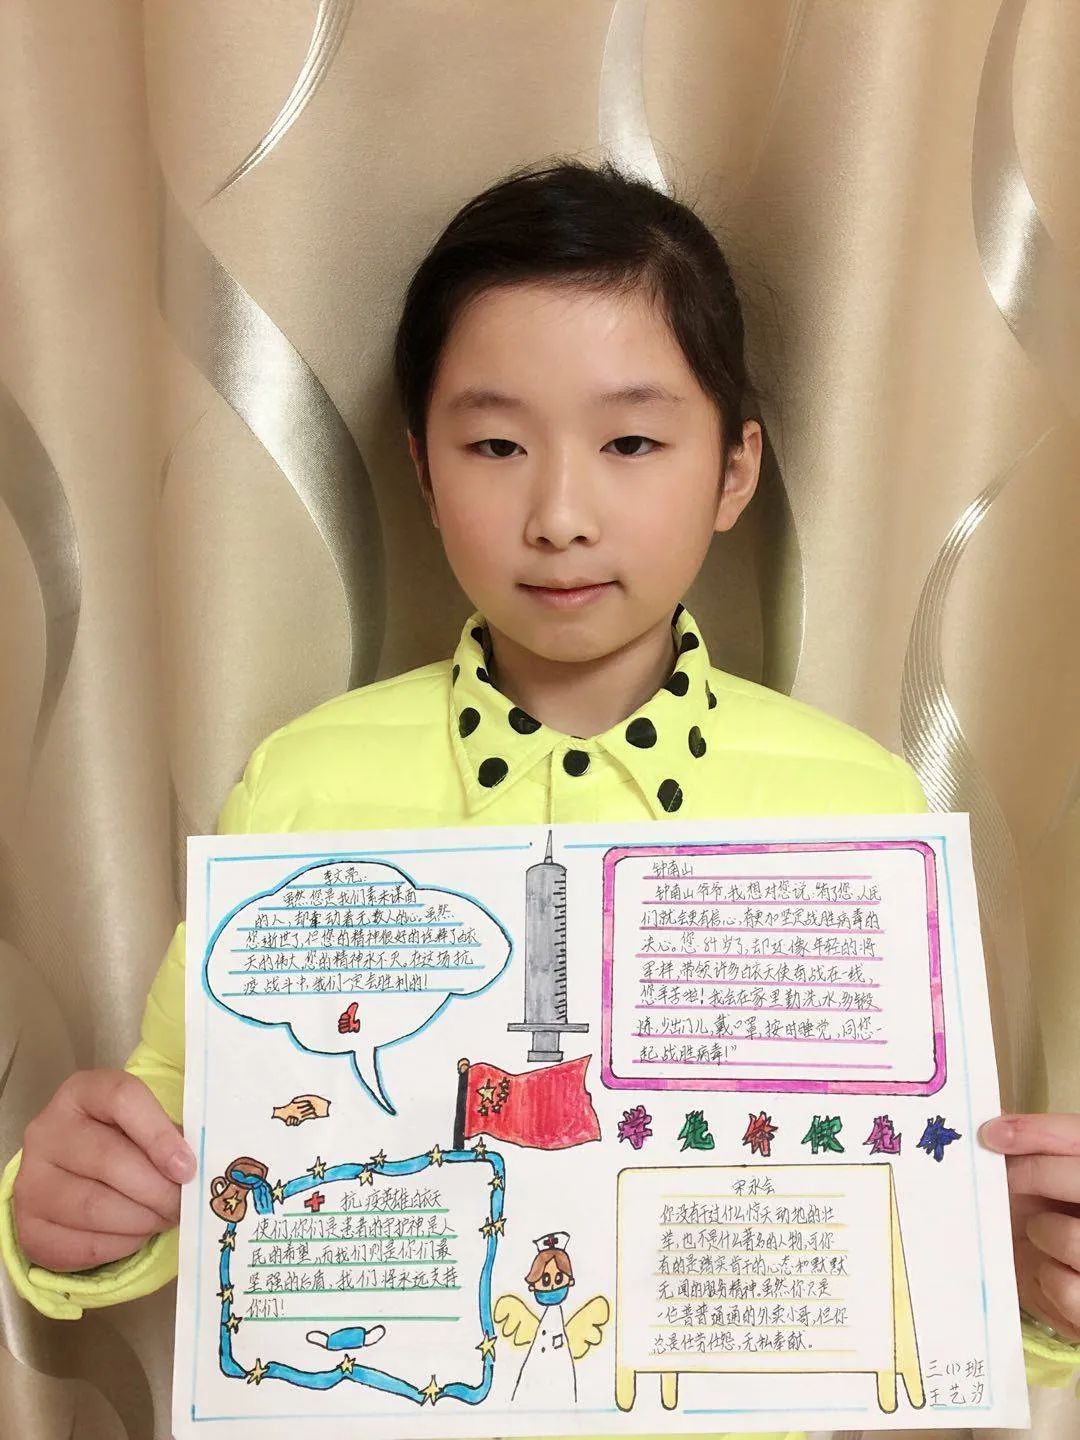 李文亮:
虽然您是我们素未谋面
的人,却牵动着无数人的心。虽然
您逝世了,但您的精神很好的诠释了白衣
天的伟大,您的精神永不灭。在这场抗
疫战斗中,我们一定会胜利的!
钟南山
钟南山爷爷,我想对您说:“有了您,人民
们就会更有信心,有更加坚定战胜病毒的
决心。您84岁了,却还像年轻的将
军样,带领许多白衣天使奋战在一线,
您辛苦啦!我会在家里勤洗水,多锻
炼,少出门儿,戴口罩,按时睡觉,同您一
起战胜病毒!”
学先锋做先锋
抗疫英雄白衣天
使们,你们是患者的守护神,是人
民的希望,而我们则是你们最
坚强的后盾,我们将永远支持
你们!
宋永会
你没有干过什么惊天动地的壮
举,也不是什么著名的人物,可你
有的是踏实肯干的心态和默默
无闻的服务精神。虽然你只是
一位普普通通的外卖小哥,但你
总是任劳任怨,无私奉献。
三(1)班
王艺汐